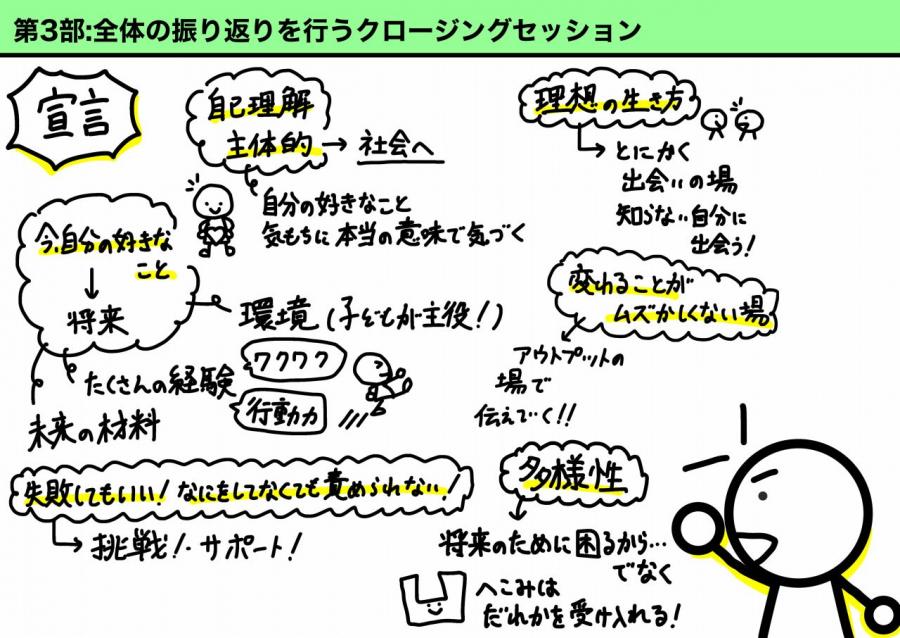 第3部:全体の振り返りを行うクロージングセッション
宣言
自己理解
主体的→社会へ
自分の好きなこと
気もちに本当の意味で気づく
今、自分の好きな
こと
↓
将来
環境(子どもが主役!)
たくさんの経験
ワクワク
行動力
未来の材料
失敗してもいい!なにをしてなくても責められない!
挑戦!・サポート!
理想の生き方
とにかく
出会いの場
知らない自分に
出会う!
変わることが
ムズかしくない場。
アウトプットの
場で
伝えていく!!
多様性
将来のために困るから…
でなく
へこみは
だれかを受け入れる!